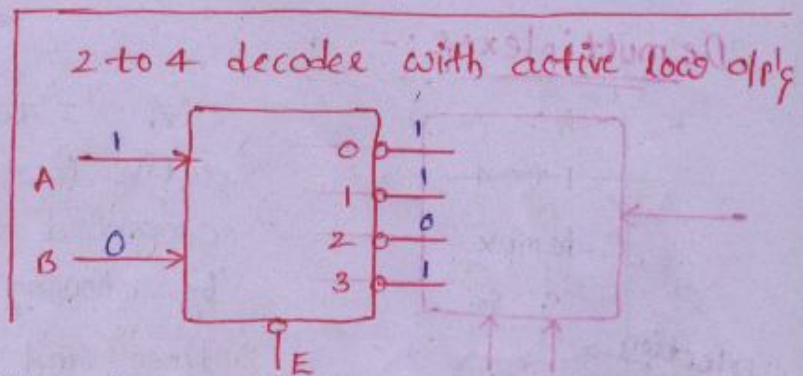 2 to 4 decoder with active low o/p's
A 1 0 1
1 1
B 0 2 0
3 1
E